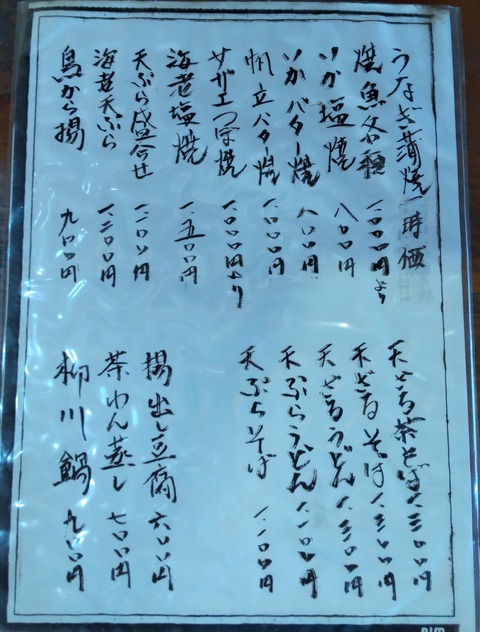 うなぎ蒲焼 時価
焼魚各種 一、〇〇〇円より
いか塩焼 八〇〇円
いかバター焼 八〇〇円
帆立バター焼 一、〇〇〇円
サザエつぼ焼 一、〇〇〇円より
海老塩焼 一、五〇〇円
天ぷら盛合せ 一、二〇〇円
海老天ぷら 一、二〇〇円
鳥から揚 九〇〇円
天ざる茶そば 一、三〇〇円
天ざるそば 一、三〇〇円
天ざるうどん 一、三〇〇円
天ぷらうどん 一、一〇〇円
天ぷらそば 一、一〇〇円
揚出し豆腐 六〇〇円
茶わん蒸し 七〇〇円
柳川鍋 九〇〇円